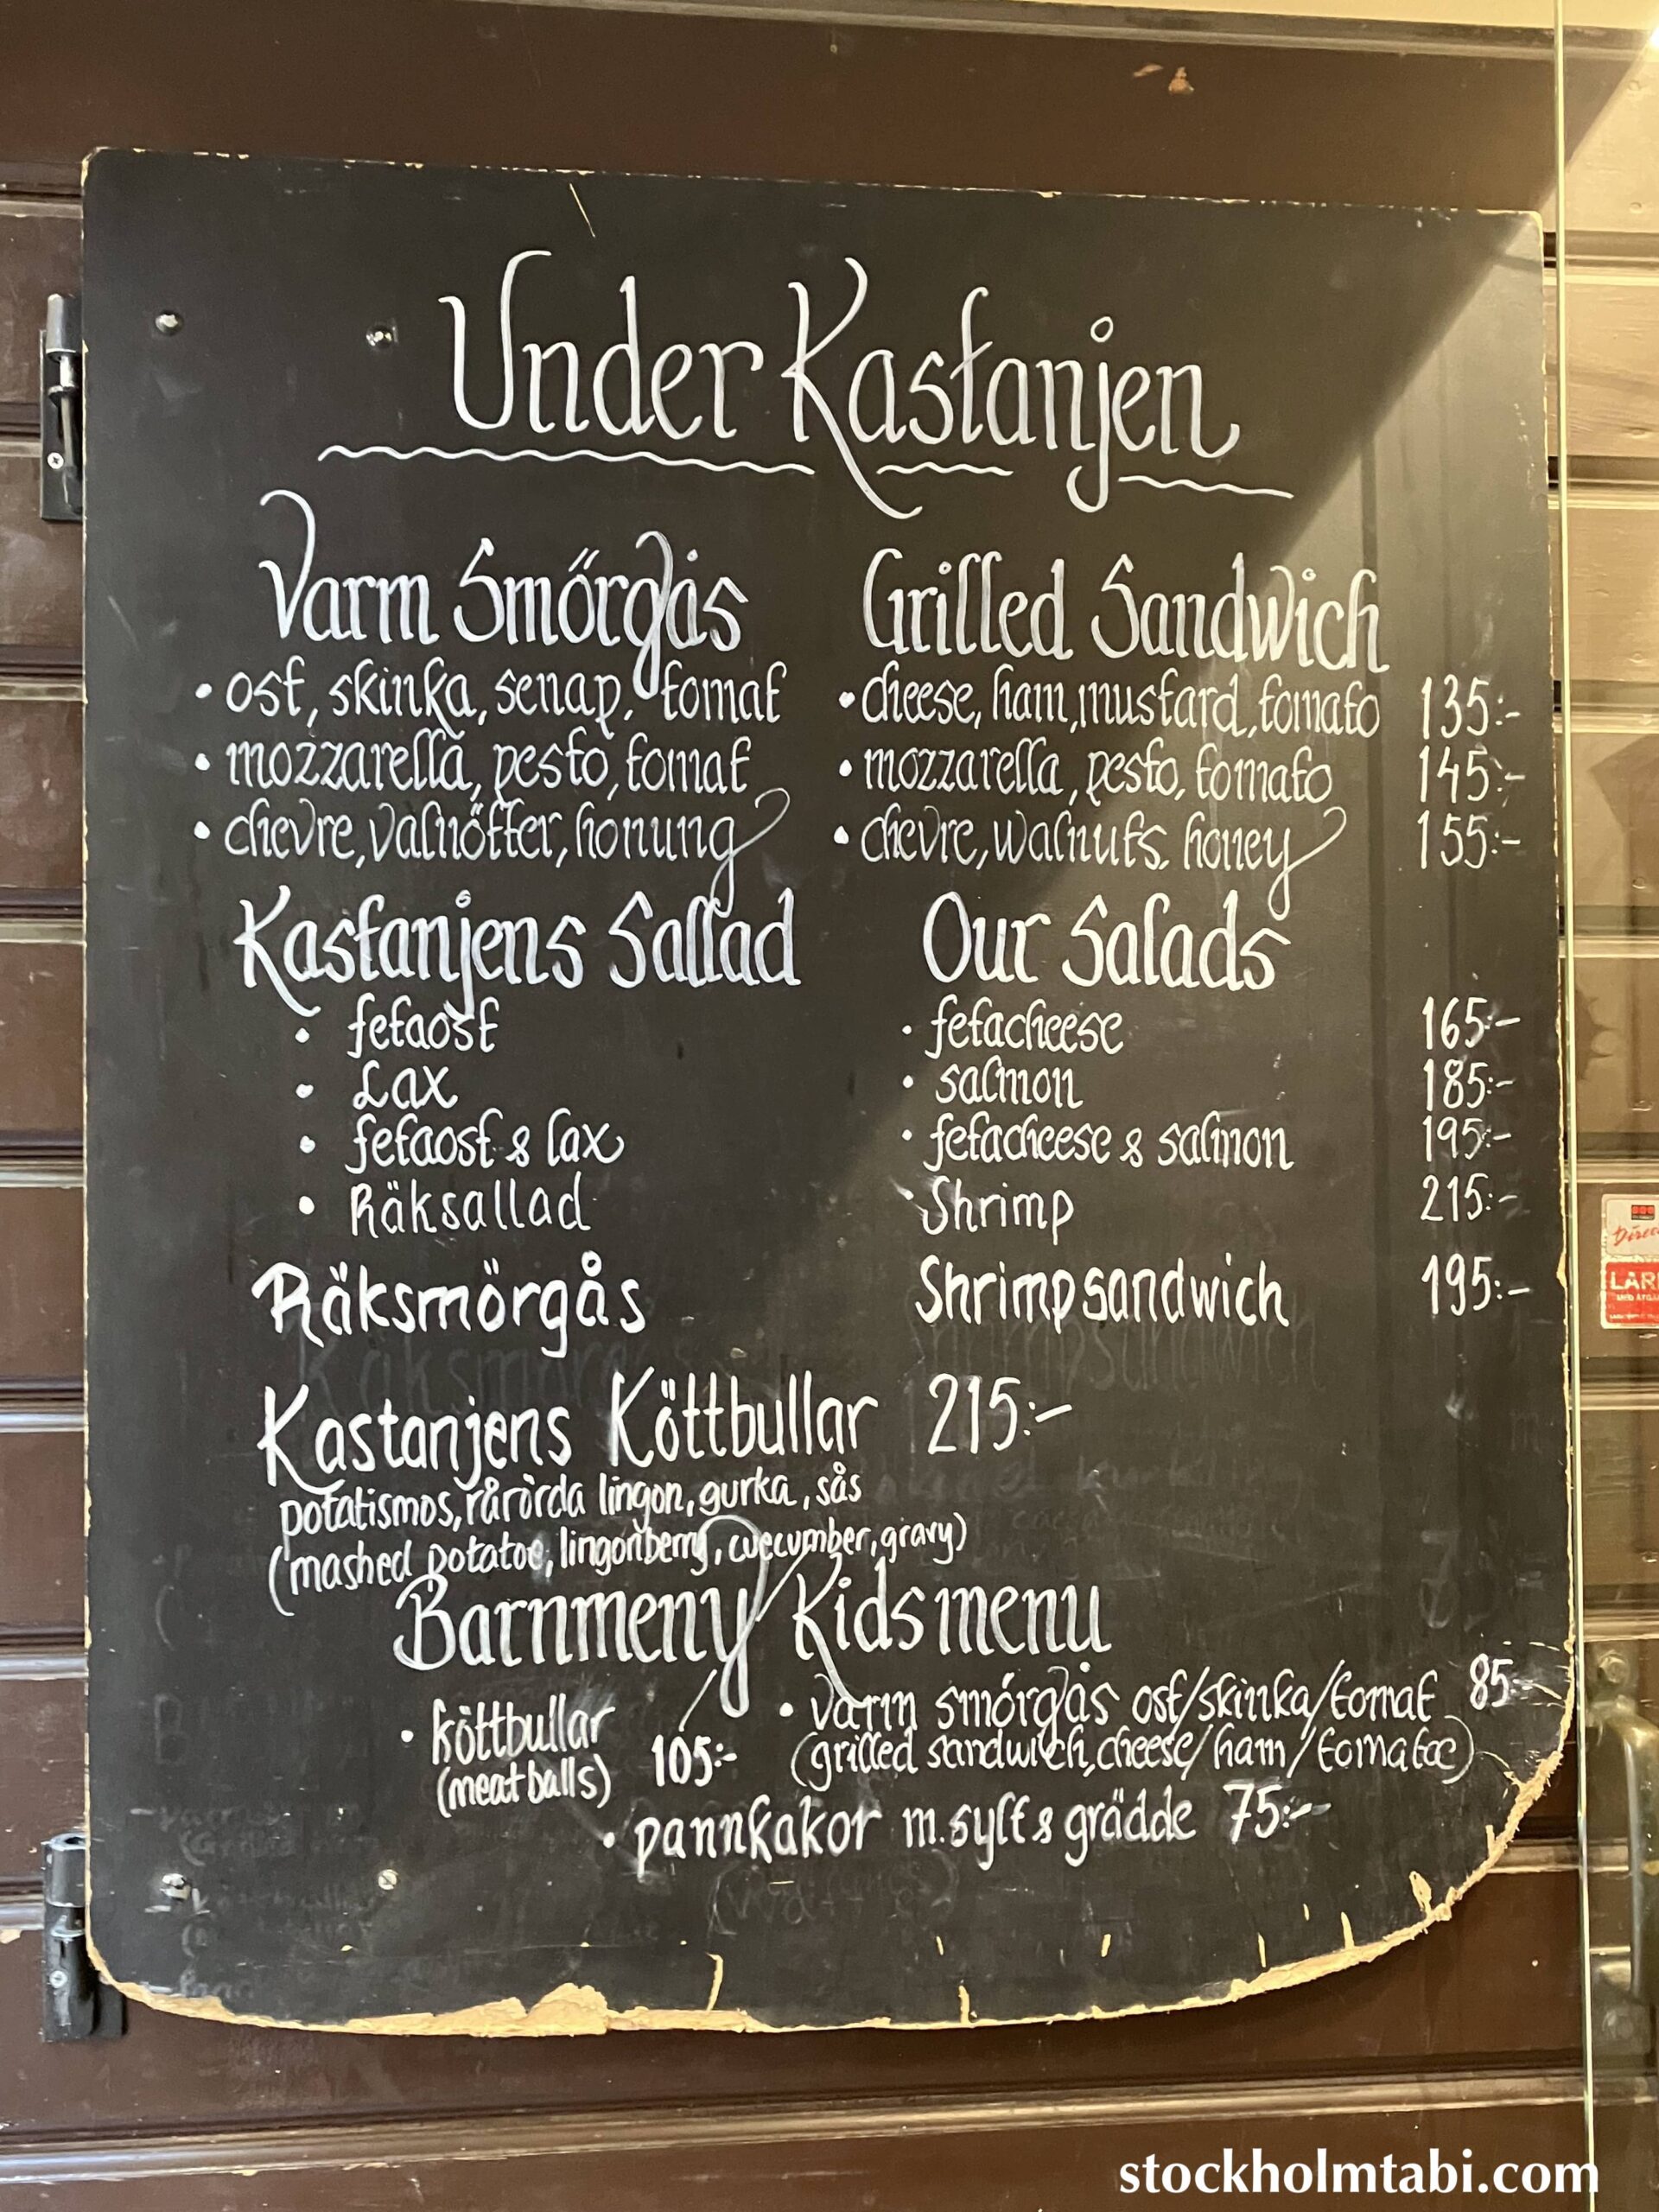 Under Kastanjen
Varm Smörgås Grilled Sandwich
• ost, skinka, senap, tomat • cheese, ham, mustard, tomato 135:-
• mozzarella, pesto, tomat • mozzarella, pesto, tomato 145:-
• chevre, valnötter, honung • chevre, walnuts, honey 155:-
Kastanjens Sallad Our Salads
• fetaost • fetacheese 165:-
• Lax • salmon 185:-
• fetaost & lax • fetacheese & salmon 195:-
• Räksallad • Shrimp 215:-
Räksmörgås Shrimpsandwich 195:-
Kastanjens Köttbullar 215:-
potatismos, rårörda lingon, gurka, sås
(mashed potatoe, lingonberry, cuecumber, gravy)
Barnmeny/Kidsmenu
• köttbullar 105:- • varm smörgås ost/skinka/tomat 85:-
(meatballs) (grilled sandwich, cheese/ham/tomatoe)
• pannkakor m. sylt & grädde 75:-
LAR
stockholmtabi.com